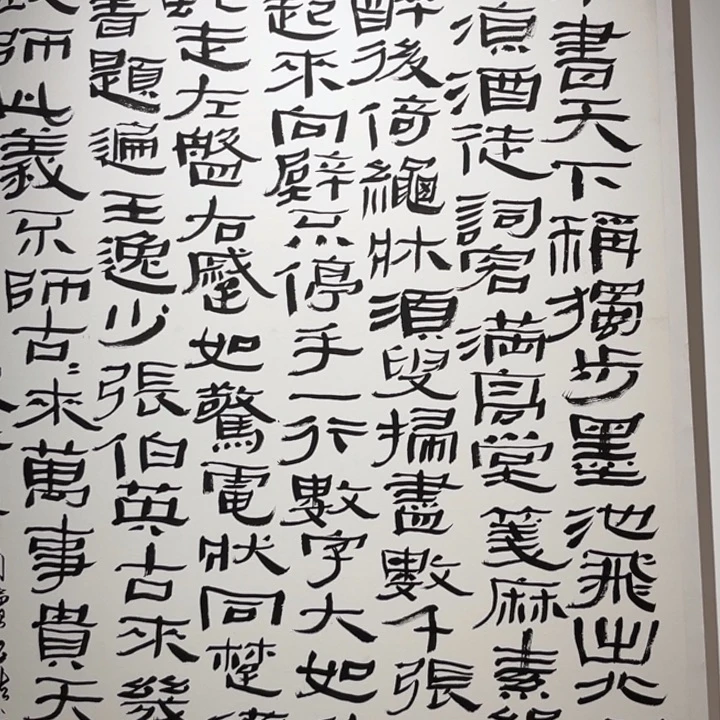 書天下稱獨步墨池飛出北
涼酒徒詞客満高堂箋麻素絹
醉後倚繩牀須臾掃盡數千張
起來向壁不停手一行數字大如
走左盤右蹙如驚電狀同楚漢
書題遍王逸少張伯英古來幾
師此義不師古〻來萬事貴天